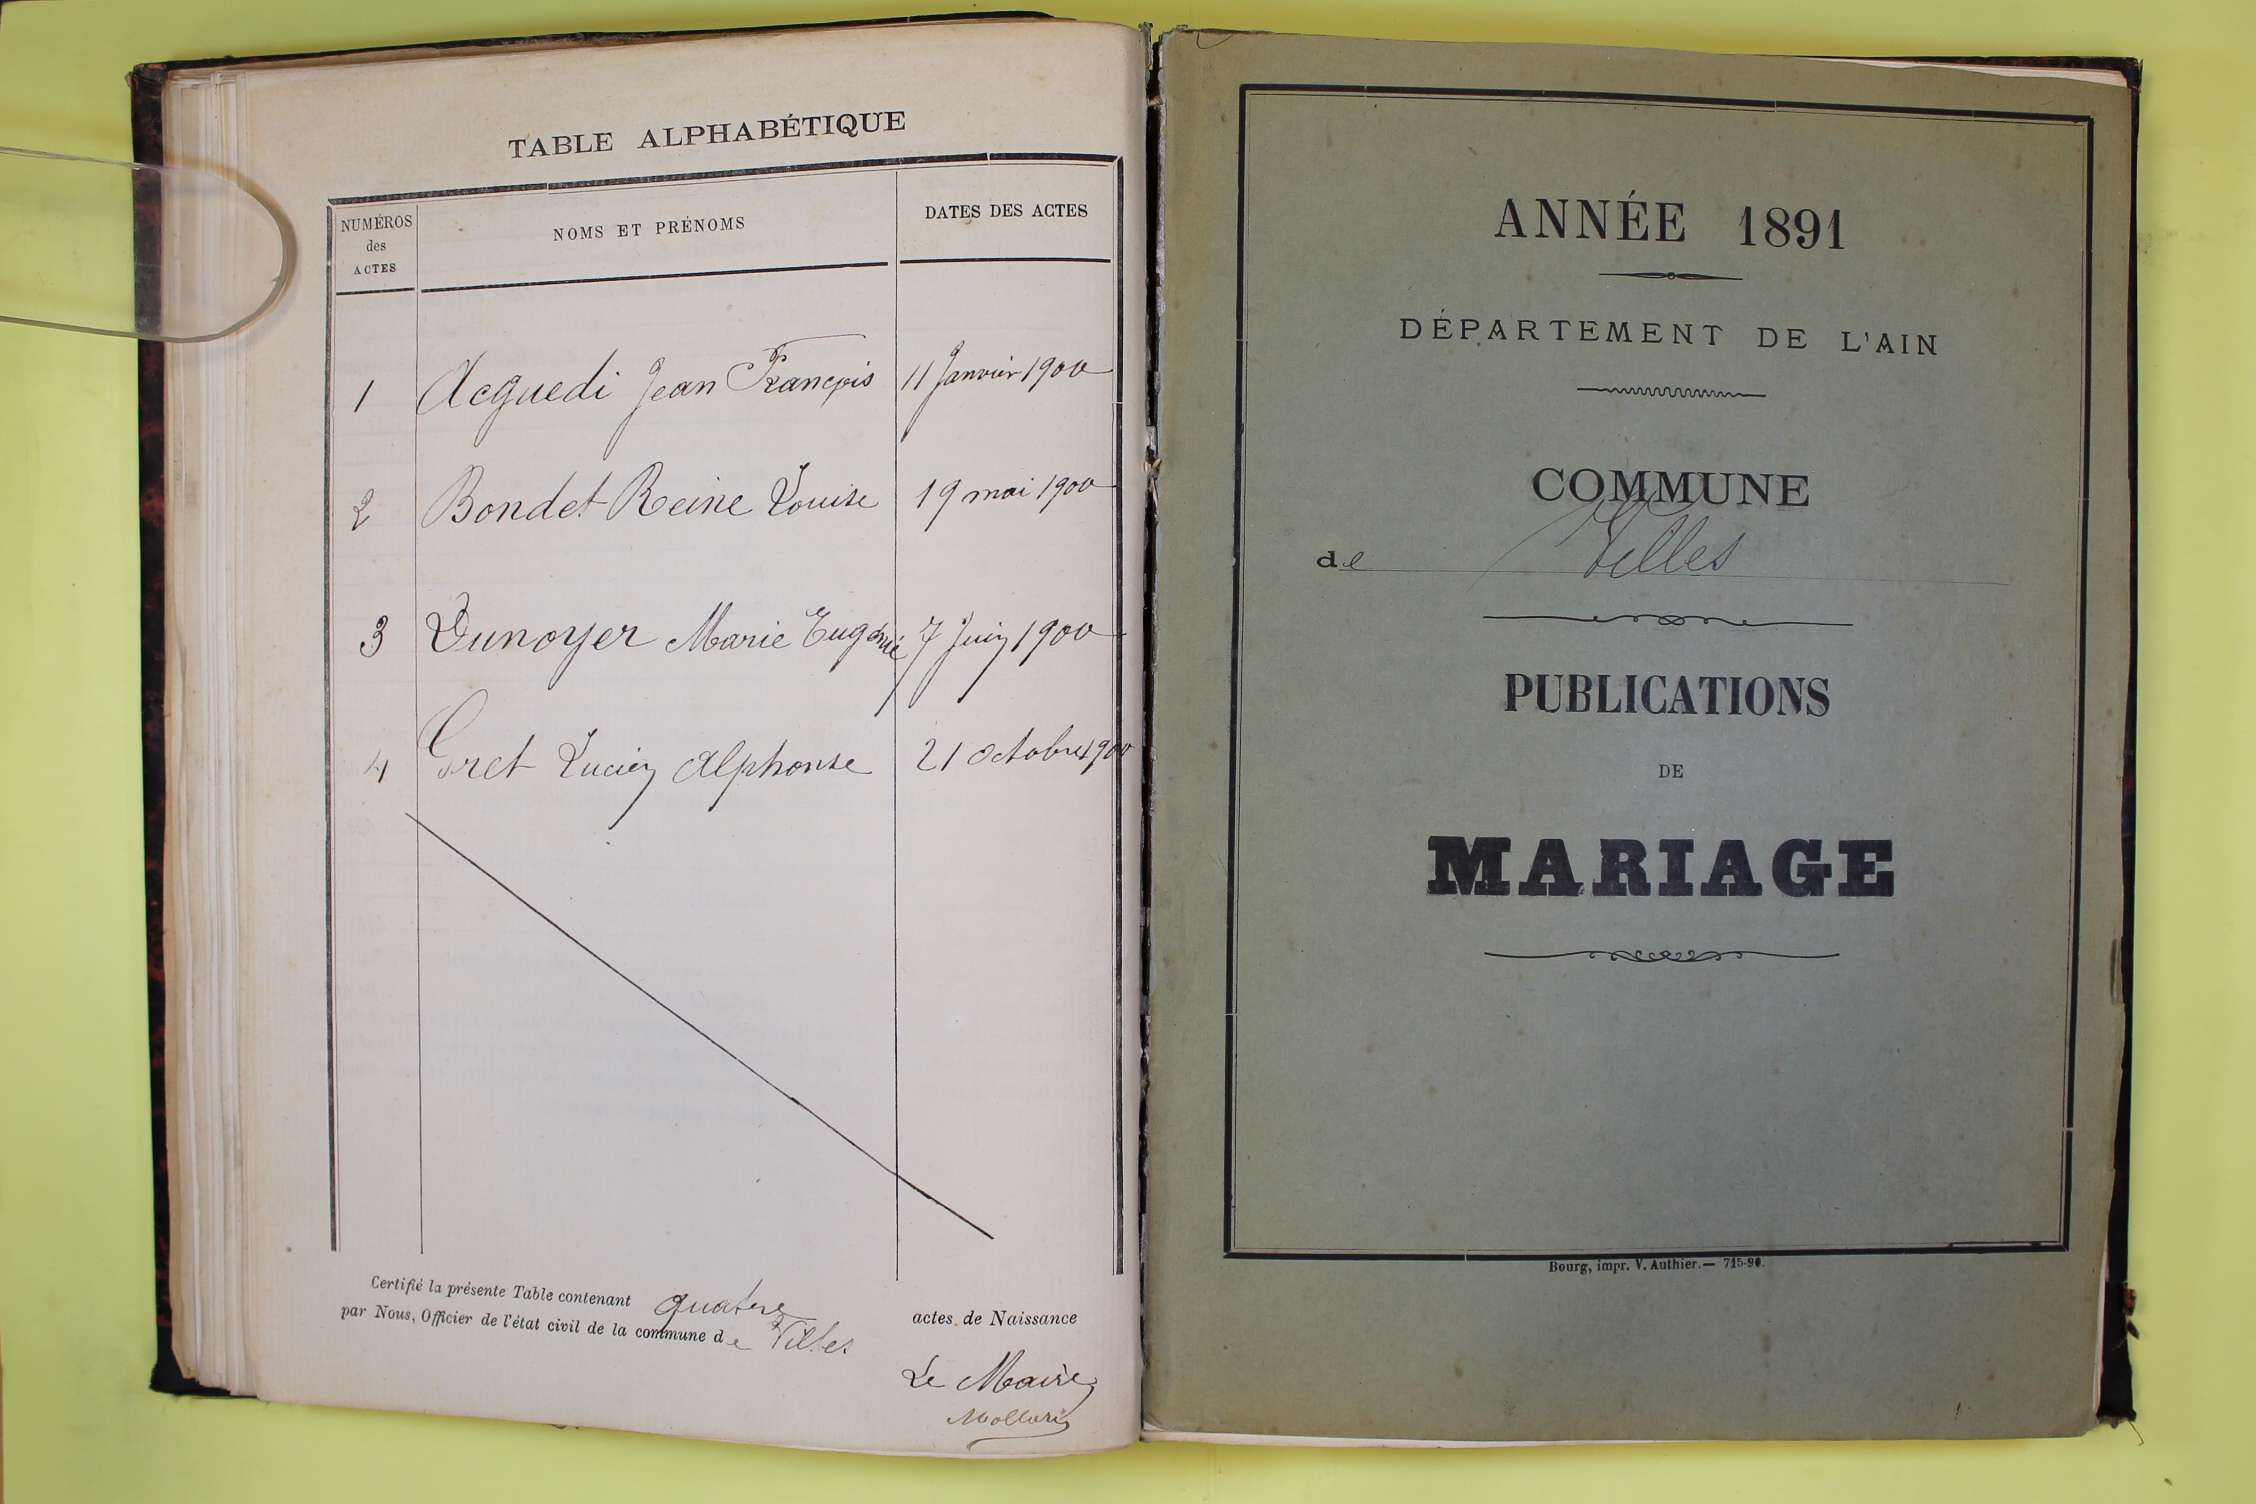 TABLE ALPHABÉTIQUE
NUMÉROS
des
ACTES
NOMS ET PRÉNOMS
DATES DES ACTES
1 Acguedi Jean François 11 Janvier 1900
2 Bondet Reine Louise 19 mai 1900
3 Dunoyer Marie Eugénie 7 Juin 1900
4 Gret Lucien Alphonse 21 octobre 1900
Certifié la présente Table contenant quatre actes de Naissance
par Nous, Officier de l'état civil de la commune de Villes
Le Maire
ANNÉE 1891
DÉPARTEMENT DE L'AIN
COMMUNE
de Villes
PUBLICATIONS
DE
MARIAGE
Bourg, impr. V. Authier. — 715-90.